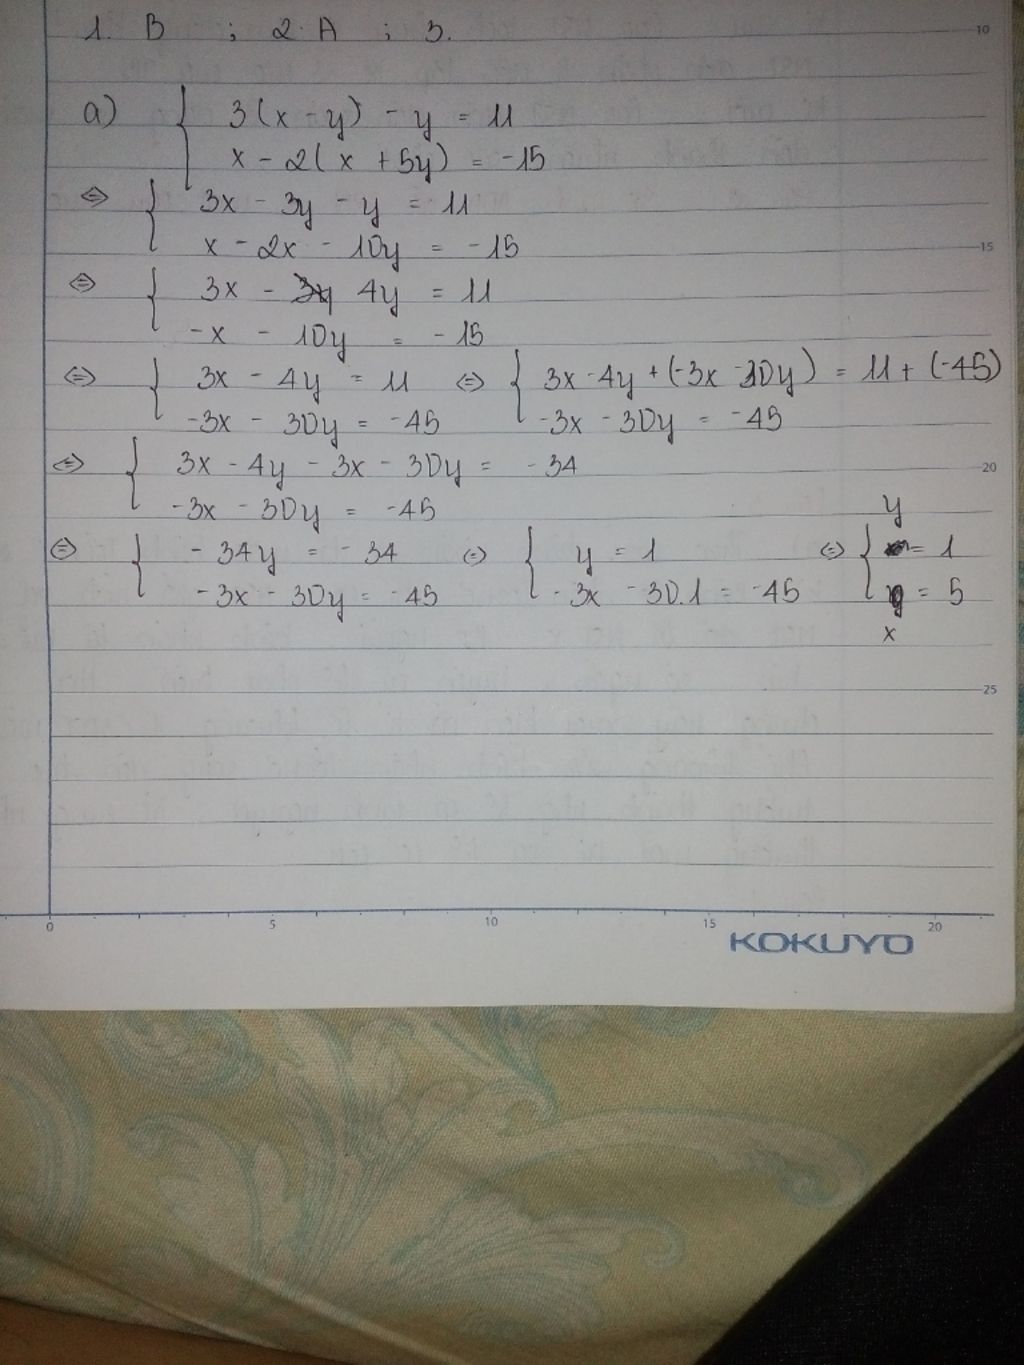 1. B ; 2. A ; 3.
10
a) { 3(x - y) - y = 11
x - 2(x + 5y) = -15
⇔ { 3x - 3y - y = 11
x - 2x - 10y = -15
15
⇔ { 3x - 4y = 11
-x - 10y = -15
⇔ { 3x - 4y = 11 ⇔ { 3x - 4y + (-3x - 30y) = 11 + (-45)
-3x - 30y = -45 -3x - 30y = -45
⇔ { 3x - 4y - 3x - 30y = -34
20
-3x - 30y = -45
y
⇔ { -34y = -34 ⇔ { y = 1 ⇔ { = 1
-3x - 30y = -45 -3x - 30.1 = -45 = 5
x
25
0 5 10 15 20
KOKUYO